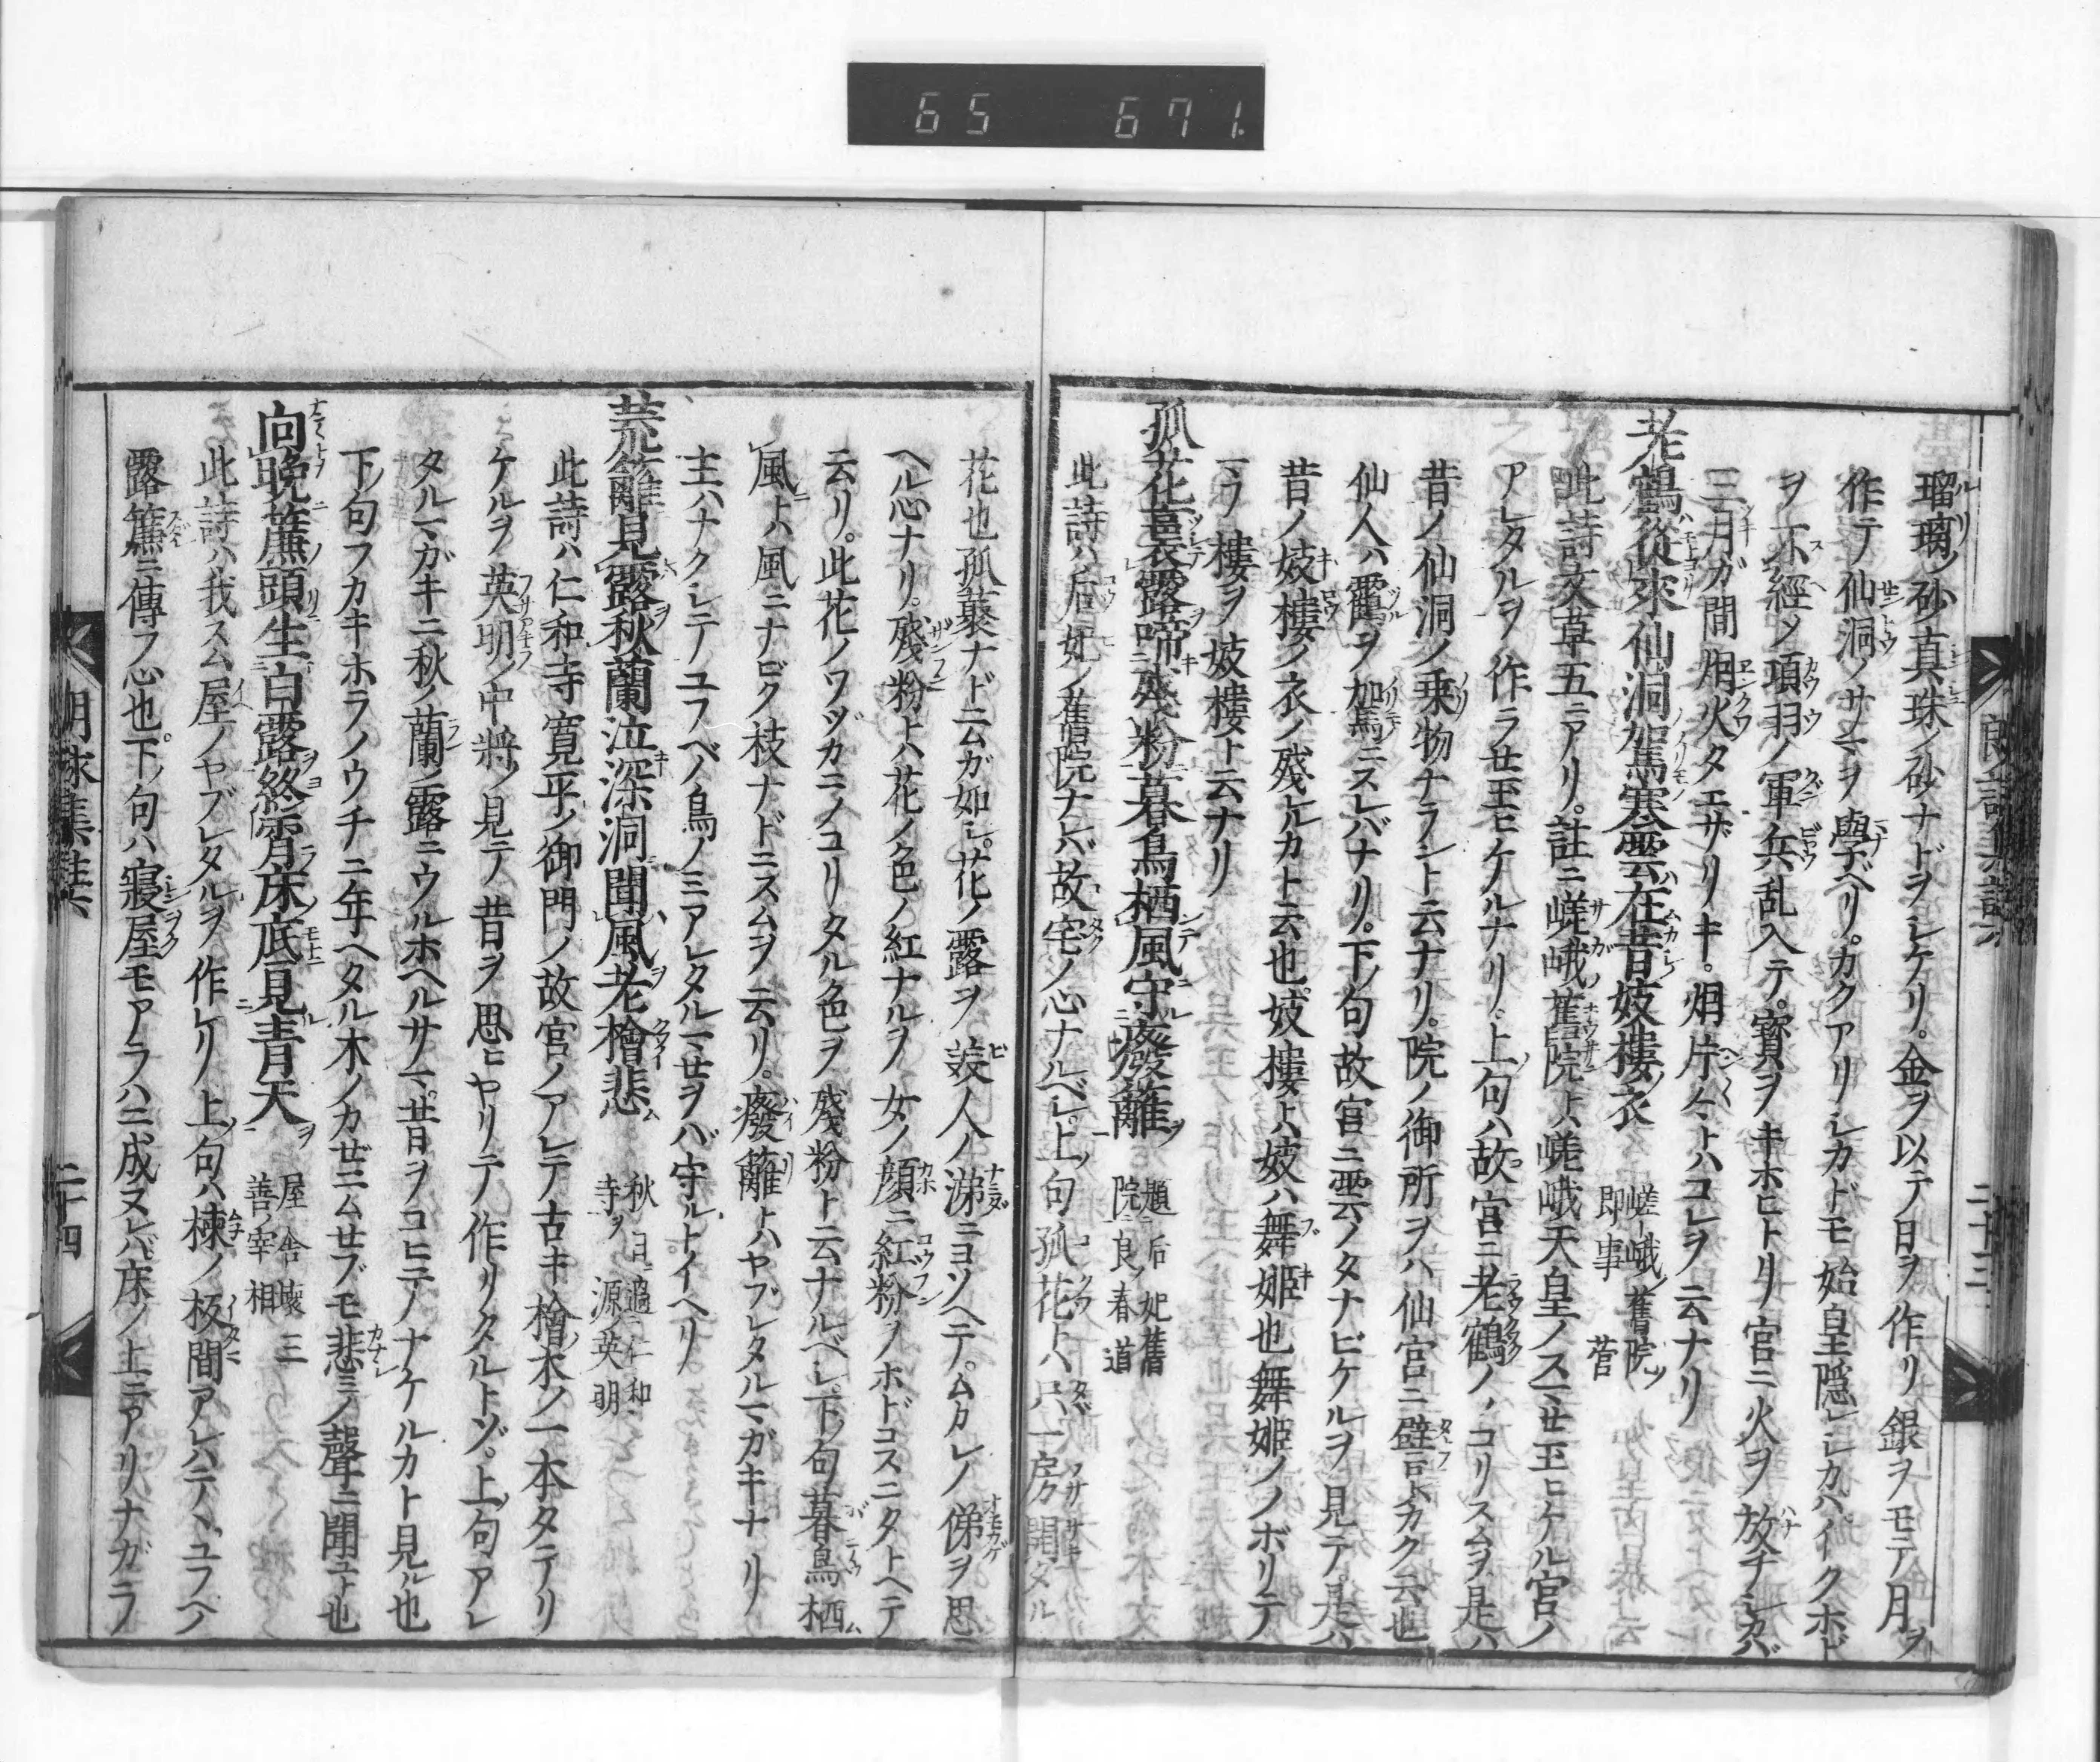 65 671.
瑠璃ノ砂真珠ノ砂ナドヲシケリ。金ヲ以テ日ヲ作リ銀ヲモテ月ヲ
作テ仙洞ノサマヲ學ベリ。カクアリシカドモ始皇隠レシカバイクホド
ヲ不經シテ項羽ノ軍兵乱入テ。寳ヲキホヒトリ宮ニ火ヲ放チシカバ
三月ガ間烟火タエザリキ。烟片々トハコレヲ云ナリ
老鶴從來仙洞駕寒雲在昔妓樓衣 嵯峨舊院ノ即事 菅
此詩文草五ニアリ。註ニ嵯峨舊院トハ嵯峨天皇ノスマセ玉ヒケル宮ノ
アレタルヲ作ラセ玉ヒケルナリ。上句ハ故宮ニ老鶴ノノコリスムヲ是ハ
昔ノ仙洞ノ乗物ナラント云ナリ。院ノ御所ヲハ仙宮ニ譬テカク云也
仙人ハ鶴ヲ加駕ニスレバナリ。下句故宮ニ雲ノタナビケルヲ見テ。是ハ
昔ノ妓樓ノ衣ノ殘レルカト云也。妓樓トハ妓ハ舞姫也舞姫ノノボリテ
マフ樓ヲ妓樓ト云ナリ
孤花裛露啼殘粉暮鳥栖風守廢籬 題后妃舊院 良春道
此詩ハ后妃ノ舊院ナレバ故宅ノ心ナルベシ。上句孤花トハ只一房開タル
花也孤叢ナド云ガ如シ。花ノ露ヲ美人ノ涕ニヨソヘテ。ムカシノ俤ヲ思
ヘル心ナリ。殘粉トハ花ノ色ノ紅ナルヲ女ノ顔ニ紅粉ノホドコスニタトヘテ
云リ。此花ノワヅカニノコリタル色ヲ殘粉ト云ナルベシ。下句暮鳥栖
風トハ風ニナビク枝ナドニスムヲ云リ。廢籬トハヤブレタルマガキナリ
主ハナクシテユフベノ鳥ノミアレタルマセヲバ守ルトイヘリ
荒籬見露秋蘭泣深洞聞風老檜悲 秋日過仁和寺ヲ 源英明
此詩ハ仁和寺寛平ノ御門ノ故宮ノアレテ古キ檜木ノ一本タテリ
ケルヲ英明ノ中將ノ見テ昔ヲ思ヒヤリテ作リタルトゾ。上句アレ
タルマガキニ秋ノ蘭ノ露ニウルホヘルサマ。昔ヲコヒテノナケルカト見ル也
下句フカキホラノウチニ年ヘタル木ノカゼニムセブモ悲ミノ聲ニ聞ユト也
向晩簾頭生白露終宵床底見青天 屋舎壊 三善宰相
此詩ハ我スム屋ノヤブレタルヲ作レリ上句ハ棟ノ板間アレハテヽユフベノ
露簾ニ傳フ心也。下句ハ寢屋モアラハニ成ヌレバ床ノ上ニアリナガラノ
朗詠集註六
二十三
二十四